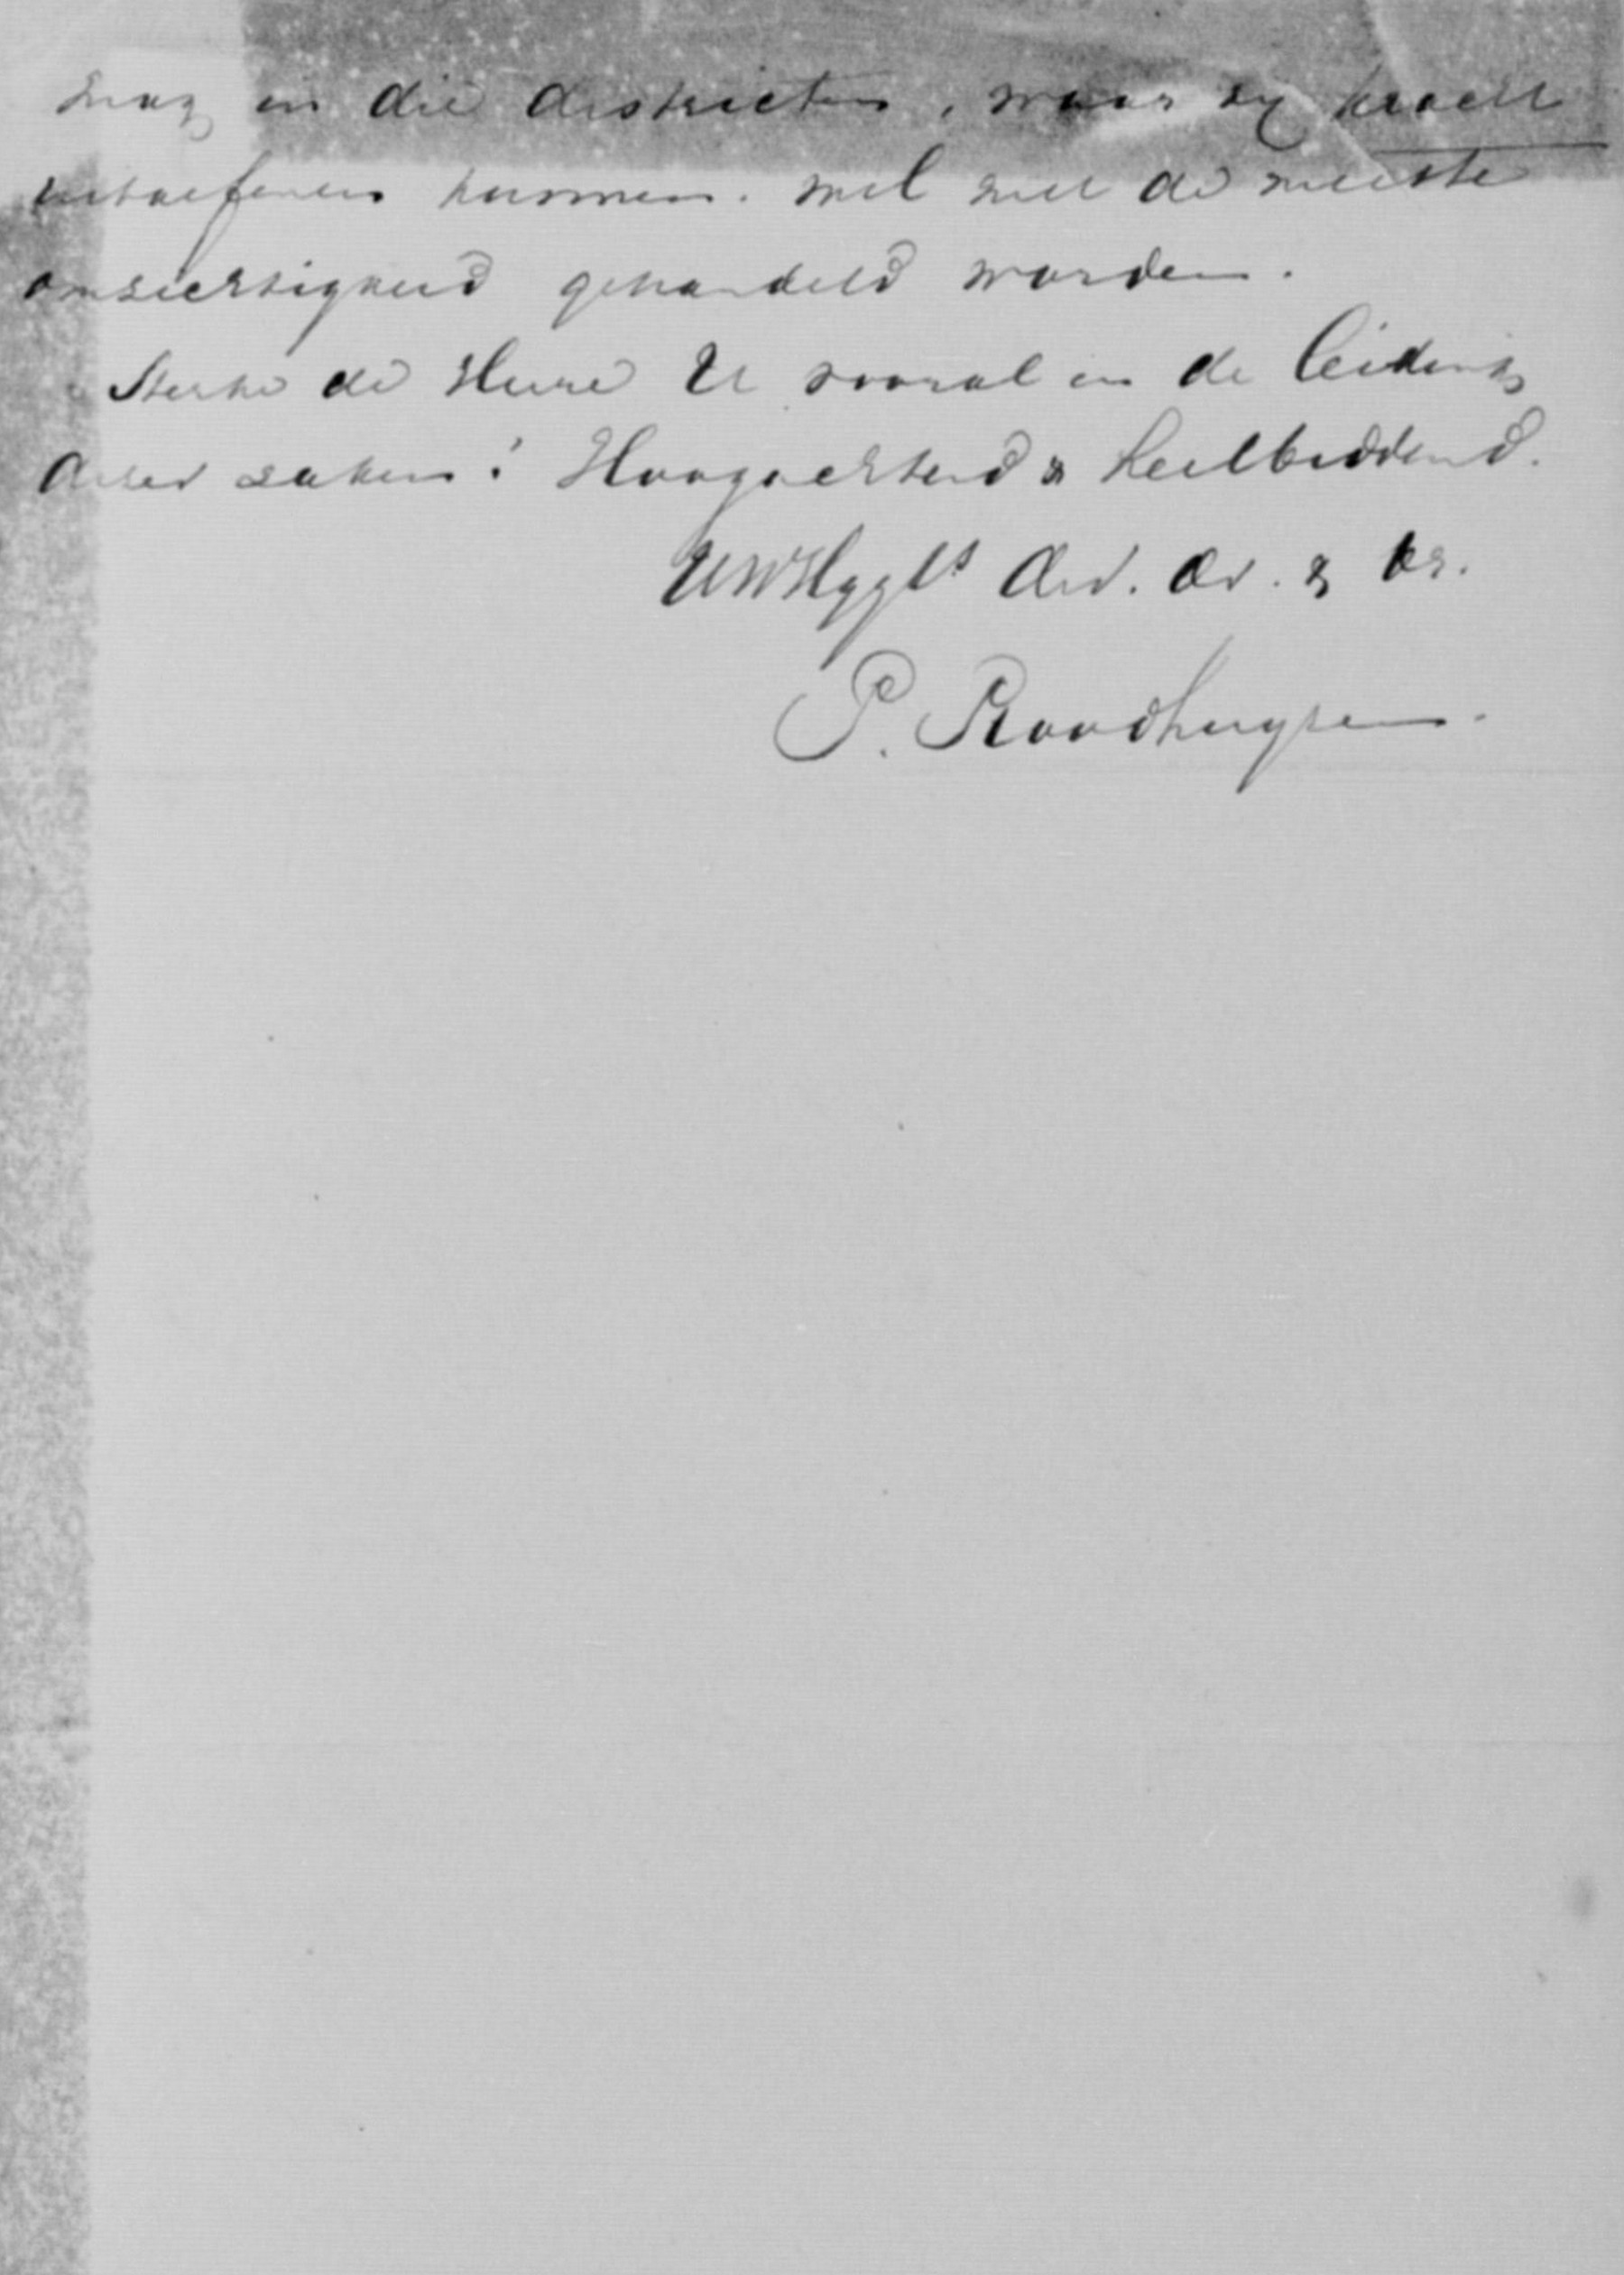 mag in die districten, waar zij kracht
uitoefenen kunnen. wel met de meeste
omzichtigheid gehandeld worden.
Sterke de Heere U vooral in de leiding
dezer zaken! Hoogachtend & heilbiddend.
UWHggls dw. dr. & br.
P. Roodhuyzen.